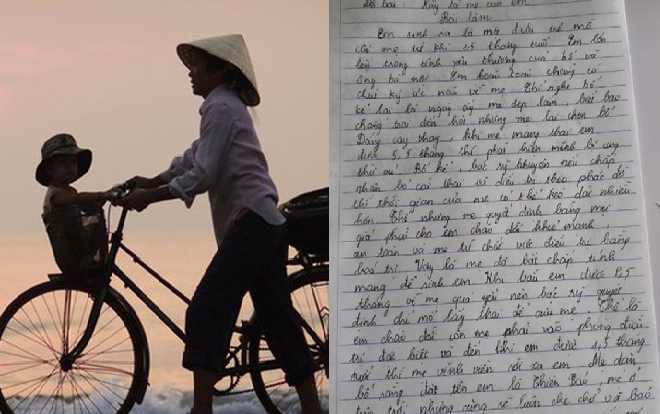 Đề bài: Hãy tả mẹ của em.
Bài làm
Em sinh ra là một đứa trẻ mồ
côi mẹ từ khi 1,5 tháng tuổi. Em lớn
lên trong tình yêu thương của bố và
ông bà nội. Em hoàn toàn chẳng có
chút ký ức nào về mẹ. Chỉ nghe bố
kể lại là ngày ấy mẹ đẹp lắm, biết bao
chàng trai đến hỏi nhưng mẹ lại chọn bố.
Đắng cay thay, khi mẹ mang thai em
được 5,5 tháng thì phát hiện mình bị ung
thư vú. Bố kể, bác sỹ khuyên nếu chấp
nhận bỏ cái thai và điều trị theo phác đồ
thì thời gian của mẹ có thể kéo dài nhiều
hơn. Thế nhưng mẹ quyết định bằng mọi
giá phải cho em chào đời khoẻ mạnh,
an toàn và mẹ từ chối việc điều trị bằng
hoá trị. Vậy là mẹ đã bất chấp tính
mạng để sinh em. Khi thai em được
tháng vì mẹ quá yếu nên bác sỹ quyết
định chỉ mổ lấy thai để cứu mẹ. Thế là
em chào đời còn mẹ phải vào phòng điều
trị đặc biệt và đến khi em được 1,5 tháng
tuổi thì mẹ vĩnh viễn rời xa em. Mẹ dặn
bố rằng đặt tên em là Thiên Bảo, mẹ ở
trên trời nhưng cũng sẽ luôn che chở và bảo